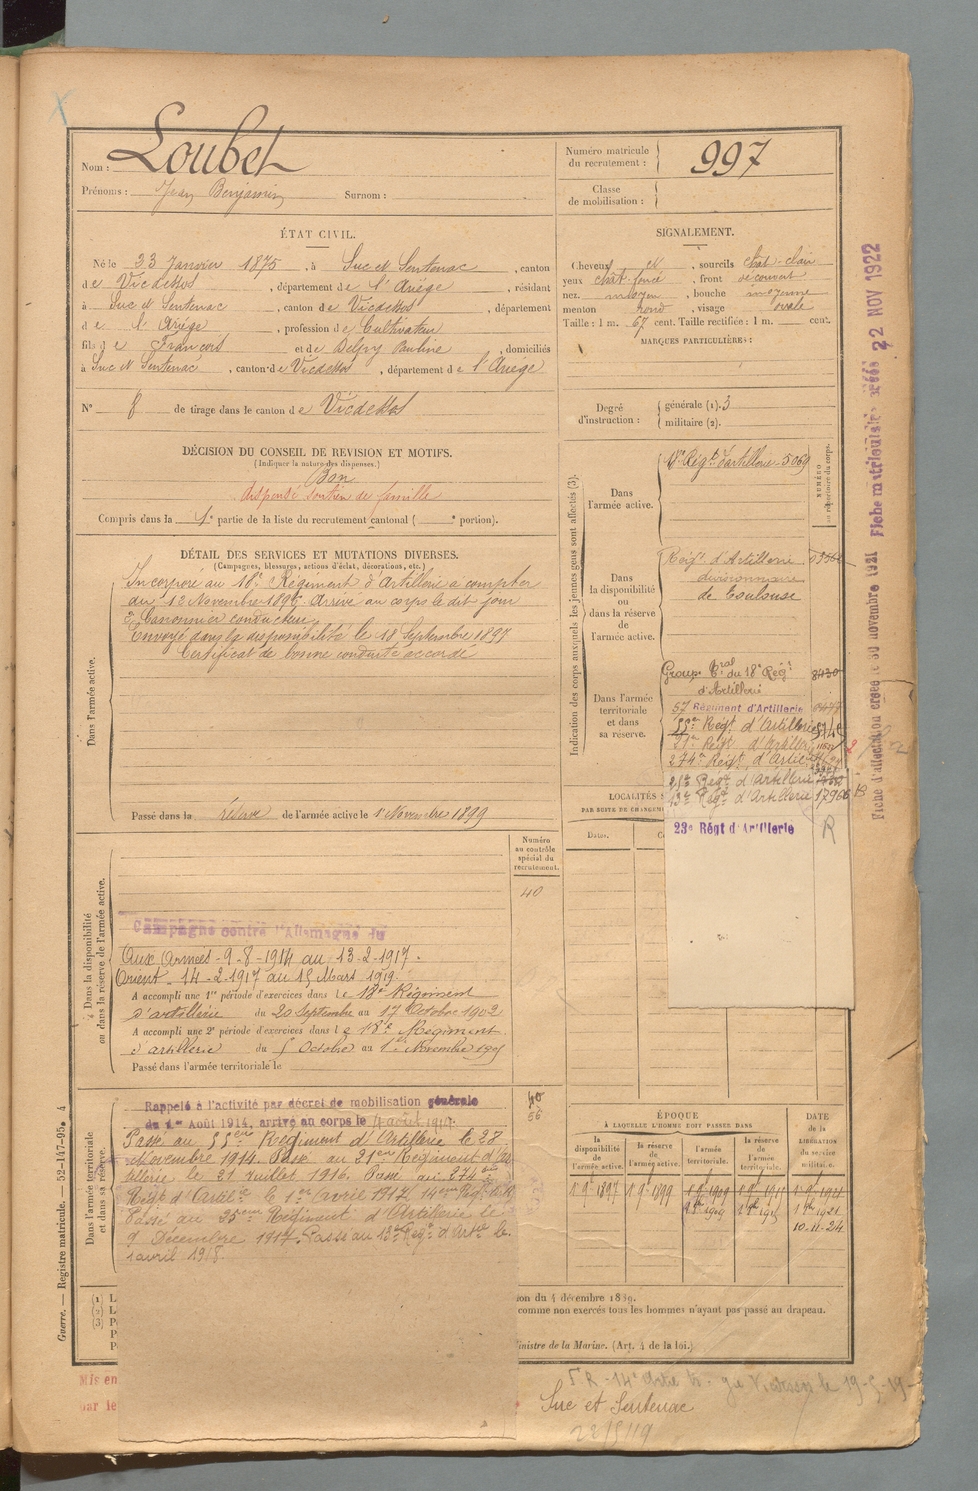 Nom : Loubet
Prénoms : Jean Benjamin Surnom :
Numéro matricule du recrutement : 997
Classe de mobilisation :
ÉTAT CIVIL.
Né le 23 Janvier 1875, à Suc et Sentenac, canton
de Vicdessos, département de l'Ariège, résidant
à Suc et Sentenac, canton de Vicdessos, département
de l'Ariège, profession de Cultivateur
fils de François et de Delpy Pauline, domiciliés
à Suc et Sentenac, canton de Vicdessos, département de l'Ariège
N° 8 de tirage dans le canton de Vicdessos
SIGNALEMENT.
Cheveux et, sourcils chat-clair
yeux chat foncé, front découvert
nez moyen, bouche moyenne
menton rond, visage ovale
Taille : 1 m. 67 cent. Taille rectifiée : 1 m. cent.
MARQUES PARTICULIÈRES :
Degré d'instruction : générale (1). 3
militaire (2).
DÉCISION DU CONSEIL DE REVISION ET MOTIFS.
(Indiquer la nature des dispenses.)
Bon
dispensé soutien de famille
Compris dans la 1e partie de la liste du recrutement cantonal ( e portion).
DÉTAIL DES SERVICES ET MUTATIONS DIVERSES.
(Campagnes, blessures, actions d'éclat, décorations, etc.)
Dans l'armée active.
Incorporé au 18e Régiment d'Artillerie à compter
du 13 Novembre 1896. Arrivé au corps le dit jour
2e Canonnier conducteur.
Envoyé dans la disponibilité le 18 Septembre 1897
Certificat de bonne conduite accordé
Passé dans la réserve de l'armée active le 1 Novembre 1899
Indication des corps auxquels les jeunes gens sont affectés (3).
NUMÉRO au répertoire du corps.
Dans l'armée active.
18e Régt d'artillerie 5069
Dans la disponibilité ou dans la réserve de l'armée active.
Régt d'Artillerie
divisionnaire
de Toulouse
Dans l'armée territoriale et dans sa réserve.
Groupe tal du 18e Régt 8430
d'Artillerie
57 Régiment d'Artillerie
55e Régt d'Artillerie
21e Régt d'Artillerie
274e Régt d'Artie
25e Régt d'Artillerie
13e Régt d'Artillerie 17966
23e Régt d'Artillerie
R
LOCALITÉS
PAR SUITE DE CHANGEM
Dates.
Numéro au contrôle spécial du recrutement.
40
Dans la disponibilité ou dans la réserve de l'armée active.
Campagne contre l'Allemagne du
Aux Armées - 9-8-1914 au 13-2-1917.
Orient - 14-2-1917 au 15 Mars 1919.
A accompli une 1re période d'exercices dans le 18e Régiment
d'artillerie du 20 Septembre au 17 Octobre 1902
A accompli une 2e période d'exercices dans le 18e Régiment
d'artillerie du 5 Octobre au 1er Novembre 1905
Passé dans l'armée territoriale le
Dans l'armée territoriale et dans sa réserve.
Rappelé à l'activité par décret de mobilisation générale
du 1er Août 1914, arrivé au corps le 4 août 1914.
Passé au 55ème Régiment d'Artillerie le 28
Novembre 1914. Passé au 21ème Régiment d'Ar
tillerie le 21 Juillet 1916. Passé au 274e
Régt d'Artilie le 1er avril 1917.
Passé au 25ème Régiment d'Artillerie le
9 Décembre 1917. Passé au 13e Régt d'Artie le
1 avril 1918.
40
56
ÉPOQUE
À LAQUELLE L'HOMME DOIT PASSER DANS
la disponibilité de l'armée active.
la réserve de l'armée active.
l'armée territoriale.
la réserve de l'armée territoriale.
DATE de la LIBÉRATION du service militaire.
10-11-24
on du 4 décembre 1889.
comme non exercés tous les hommes n'ayant pas passé au drapeau.
inistre de la Marine. (Art. 4 de la loi.)
Mis en
par le
Suc et Sentenac
22/5/19
Guerre. — Registre matricule. — 52-147-95. 4
Fiche d'affectation créée le 30 novembre 1921 Fiche matriculaire créée 22 NOV 1922